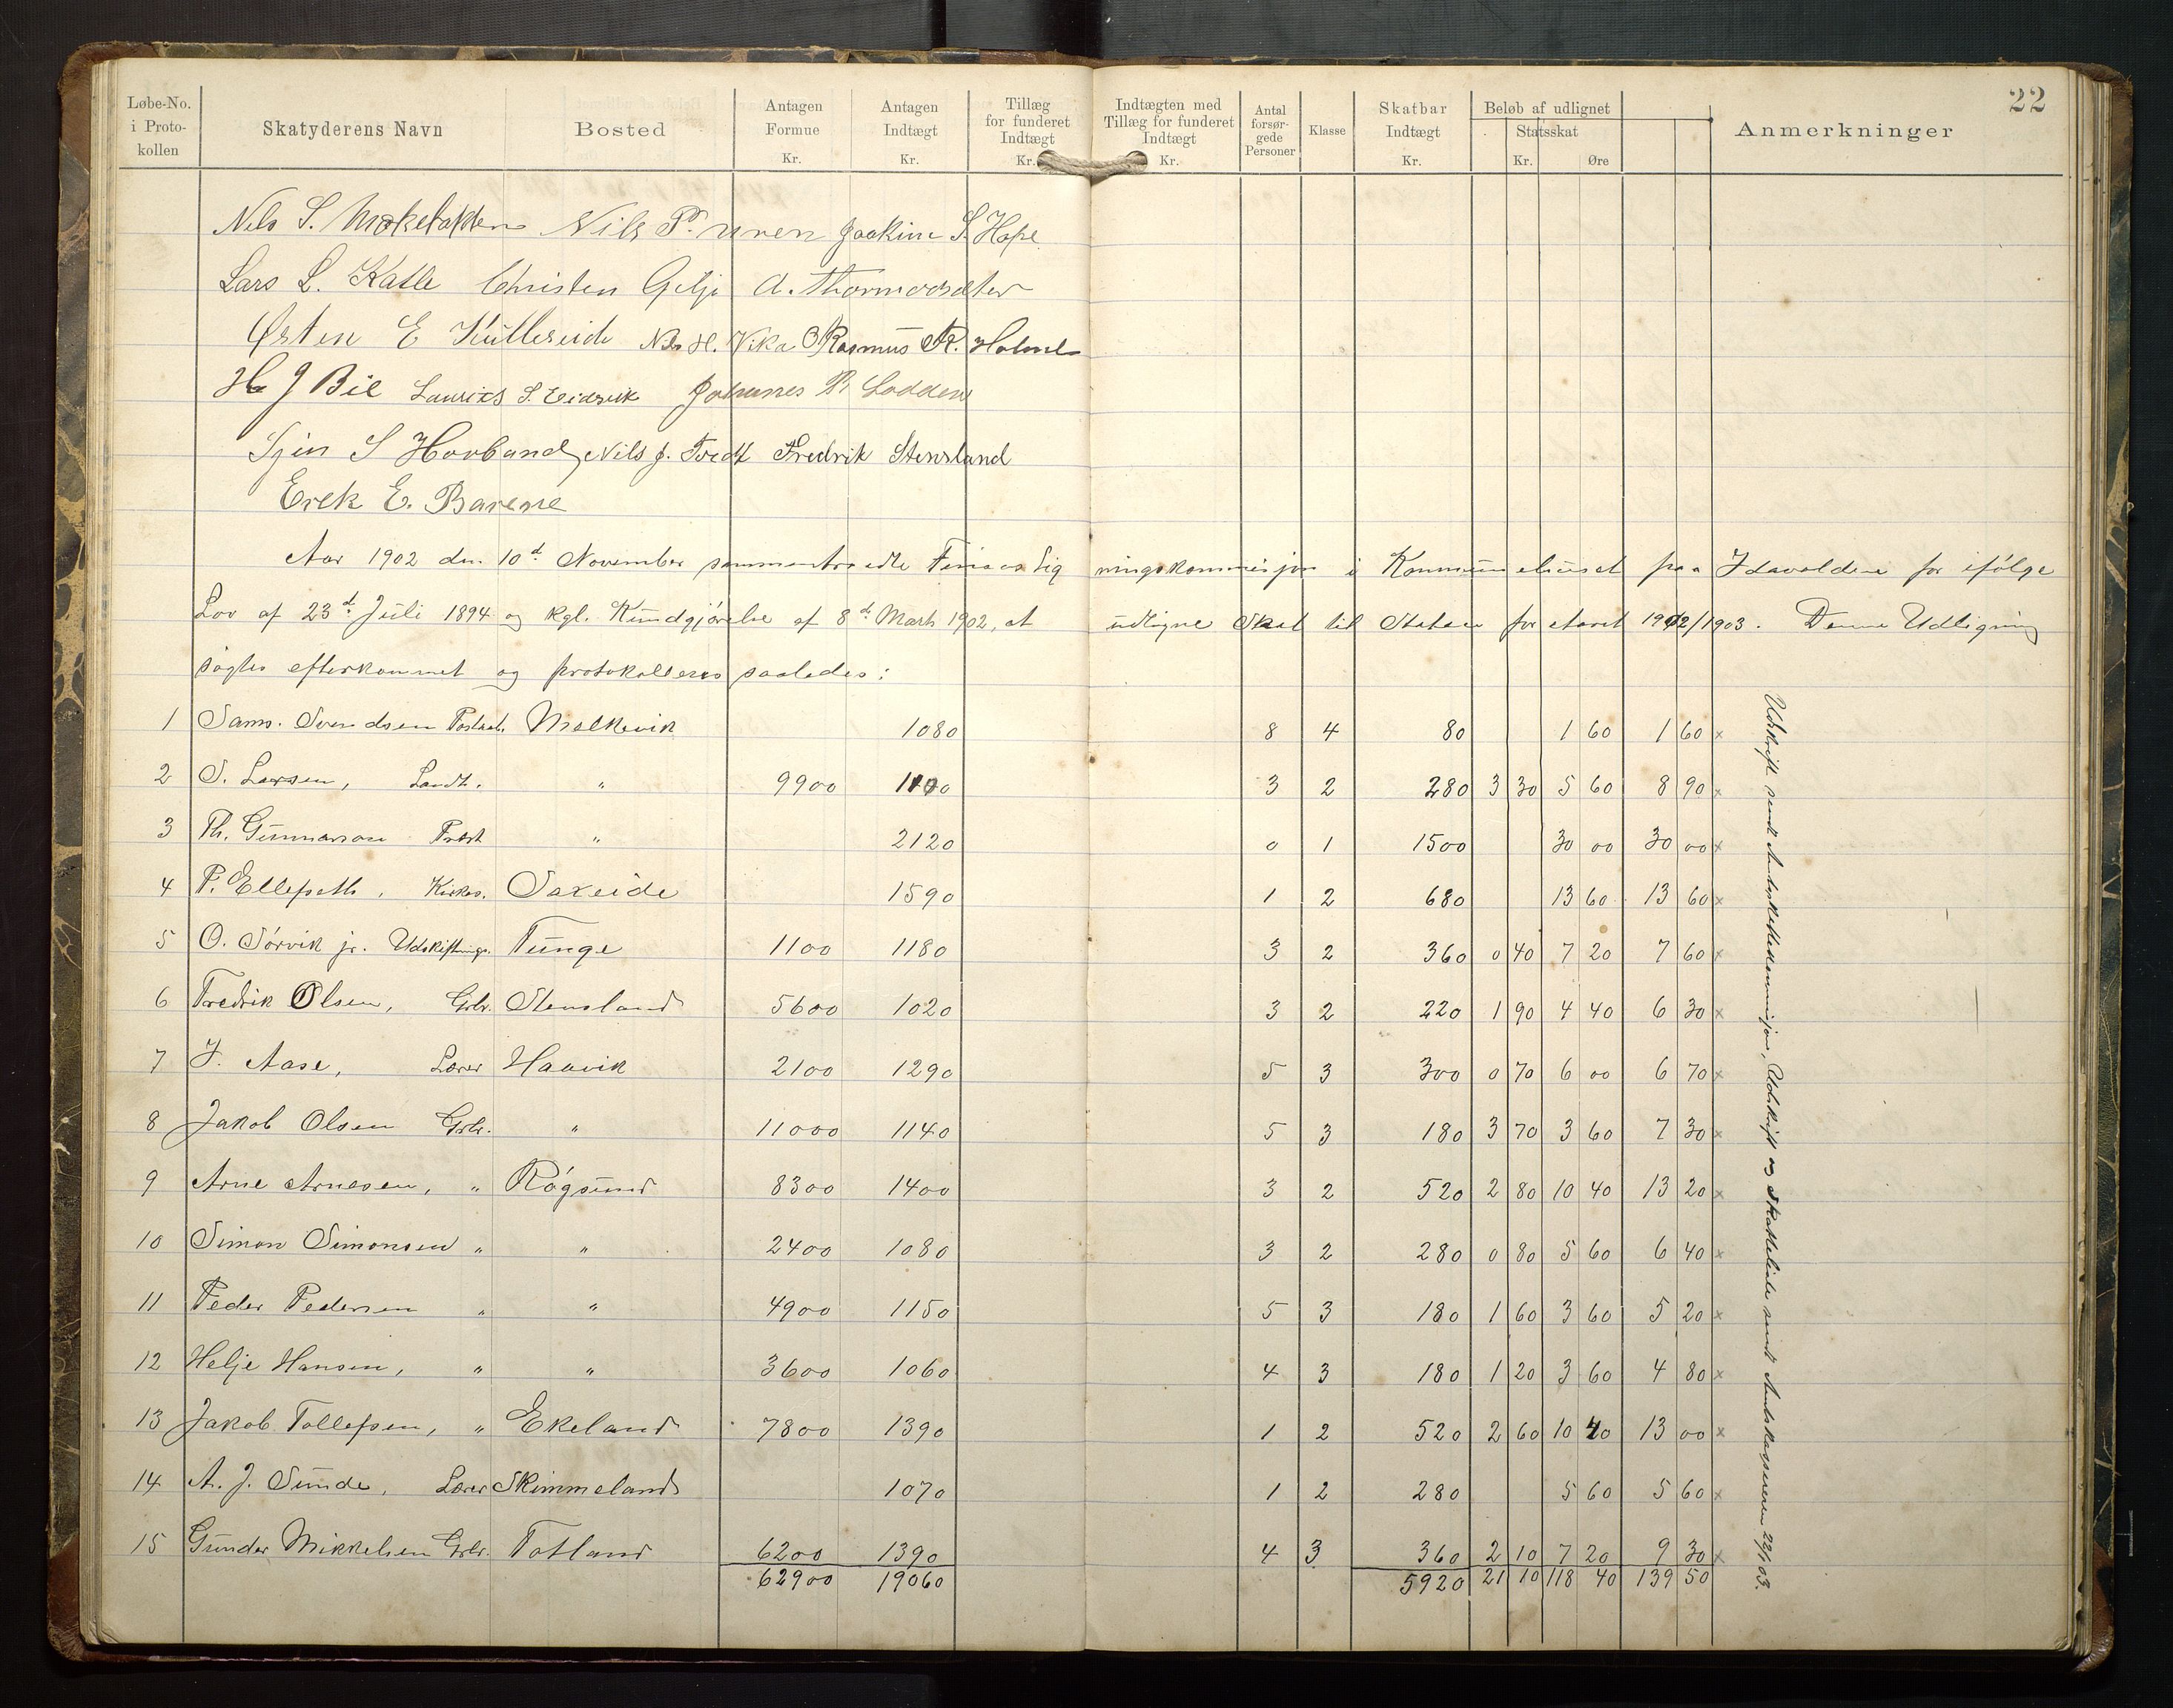 22
Løbe-No. i Proto-kollen | Skatyderens Navn | Bosted | Antagen Formue Kr. | Antagen Indtægt Kr. | Tillæg for funderet Indtægt Kr. | Indtægten med Tillæg for funderet Indtægt Kr. | Antal forsør-gede Personer | Klasse | Skatbar Indtægt Kr. | Beløb af udlignet Statsskat Kr. Øre | Anmerkninger
Nils S. Nils P. Uren Joakim S. Hope
Lars L. Katle Christen Gilje A.
Østen E Kullereide Nils H. Vika Rasmus R.
H J Bie Laurits S. Johannes R Lodden
S Hovland Nils J. Tvedt Fredrik Stensland
Erek E. Barene
Aar 1902 den 10d November sammentraadte Finnaas Ligningskommisjon i Kommunehuset paa Idavolden for ifølge
Lov af 23d Juli 1894 og kgl. Kundgjørelse af 8d Marts 1902, at udligne Skat til Staten for Aaret 1902/1903. Denne Udligning
søgtes efterkommet og protokolleres saaledes:
1 Sams. Svendsen Postaab. Mælkevik 1080 8 4 80 1 60 1 60 x
2 S. Larsen, Landh. " 9900 1100 3 2 280 3 30 5 60 8 90 x
3 Th. Gunnarson Præst " 2120 0 1 1500 30 00 30 00 x
4 P. Ellefseth, Kirkes. Sakseide 1590 1 2 680 13 60 13 60 x
5 O. Sørvik jr. Udskiftnings. Tunge 1100 1180 3 2 360 0 40 7 20 7 60 x
6 Fredrik Olsen, Grbr. Stensland 5600 1020 3 2 220 1 90 4 40 6 30 x
7 J. Aase, Lærer Haavik 2100 1290 5 3 300 0 70 6 00 6 70 x
8 Jakob Olsen Grbr. " 11000 1140 5 3 180 3 70 3 60 7 30 x
9 Arne Arnesen, " Røgsund 8300 1400 3 2 520 2 80 10 40 13 20 x
10 Simon Simonsen " " 2400 1080 3 2 280 0 80 5 60 6 40 x
11 Peder Pedersen " " 4900 1150 5 3 180 1 60 3 60 5 20 x
12 Helje Hansen, " " 3600 1060 4 3 180 1 20 3 60 4 80 x
13 Jakob Tollefsen, " Ekeland 7800 1390 1 2 520 2 60 10 40 13 00 x
14 A. J. Sunde, Lærer Skimmeland 1070 1 2 280 5 60 5 60 x
15 Gunder Mikkelsen Grbr. Totland 6200 1390 4 3 360 2 10 7 20 9 30 x
62900 19060 5920 21 10 118 40 139 50
Udskrift sendt Amtsskattekommisjon, Udskrift og Skatteliste sendt Amtskassereren 22/1 03.